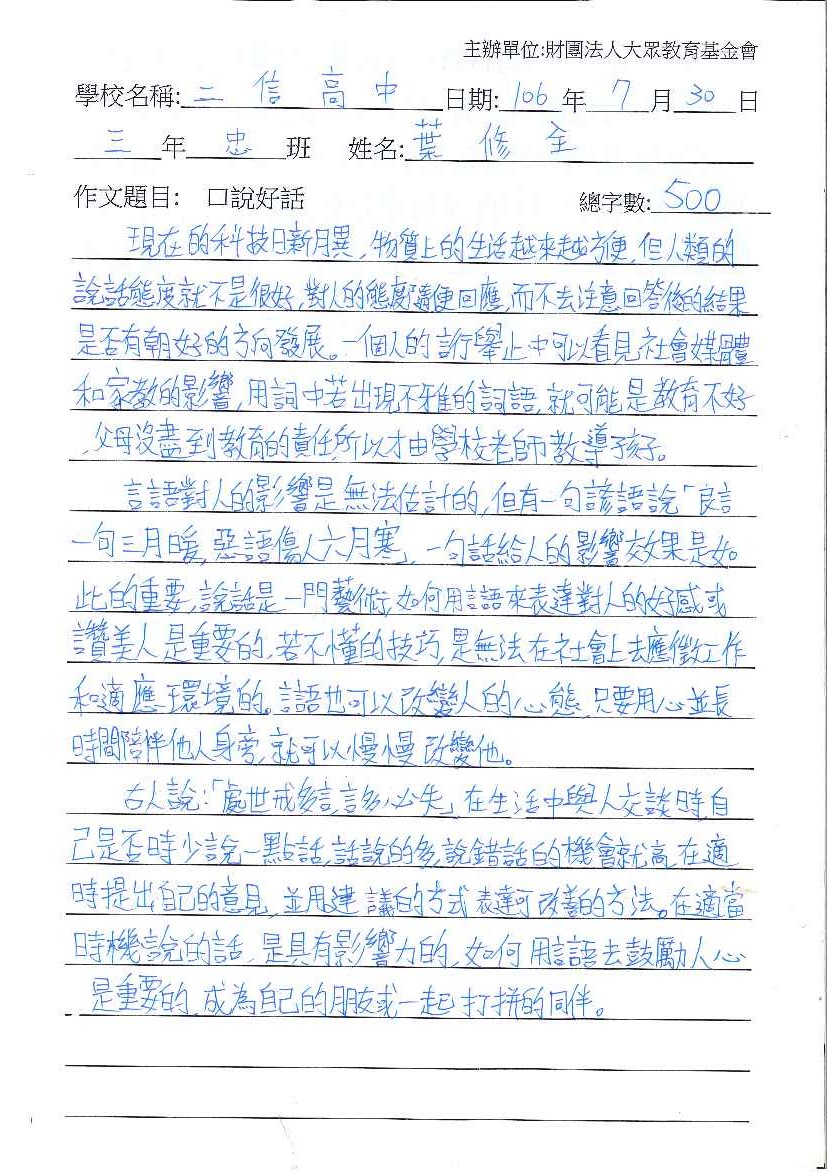 主辦單位:財團法人大眾教育基金會
學校名稱: 二信高中 日期: 106 年 7 月 30 日
三 年 忠 班 姓名: 葉修全
作文題目: 口說好話 總字數: 500
現在的科技日新月異,物質上的生活越來越方便,但人類的
說話態度就不是很好,對人的態度隨便回應,而不去注意回答後的結果
是否有朝好的方向發展。一個人的言行舉止中可以看見社會媒體
和家教的影響,用詞中若出現不雅的詞語,就可能是教育不好
,父母沒盡到教育的責任所以才由學校老師教導孩子。
言語對人的影響是無法估計的,但有一句諺語說「良言
一句三月暖,惡語傷人六月寒」,一句話給人的影響效果是如
此的重要,說話是一門藝術,如何用言語來表達對人的好感或
讚美人是重要的,若不懂的技巧,是無法在社會上去應徵工作
和適應環境的。言語也可以改變人的心態,只要用心並長
時間陪伴他人身旁,就可以慢慢改變他。
古人說:「處世戒多言,言多必失」在生活中與人交談時,自
己是否時少說一點話,話說的多,說錯話的機會就高,在適
時提出自己的意見,並用建議的方式表達可改善的方法。在適當
時機說的話,是具有影響力的,如何用言語去鼓勵人心
是重要的,成為自己的朋友或一起打拼的同伴。